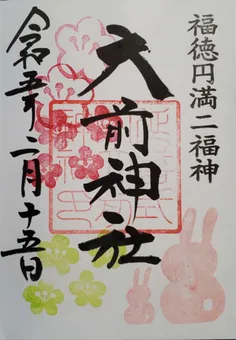 福徳円満二福神
大前神社
令和五年二月十五日